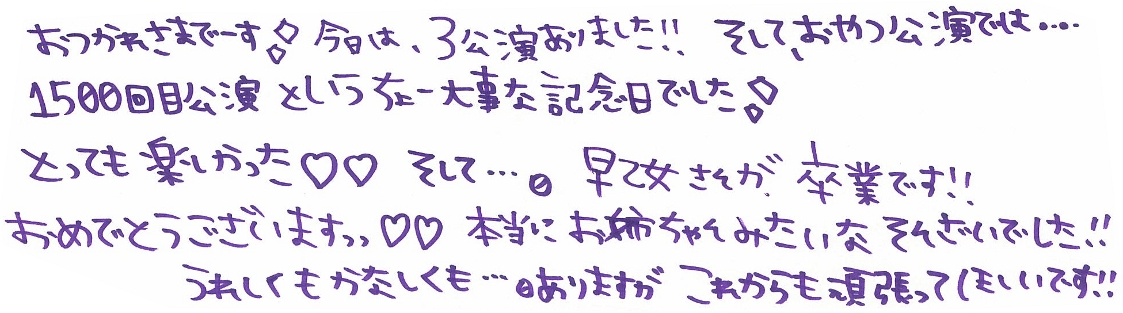 おつかれさまでーす! 今日は、3公演ありました!! そして、おやつ公演では....
1500回目公演というちょー大事な記念日でした!
とっても楽しかった♡♡ そして…。早乙女さんが、卒業です!!
おめでとうございますっっ♡♡ 本当にお姉ちゃんみたいなそんざいでした!!
うれしくもかなしくも…。ありますが これからも頑張ってほしいです!!